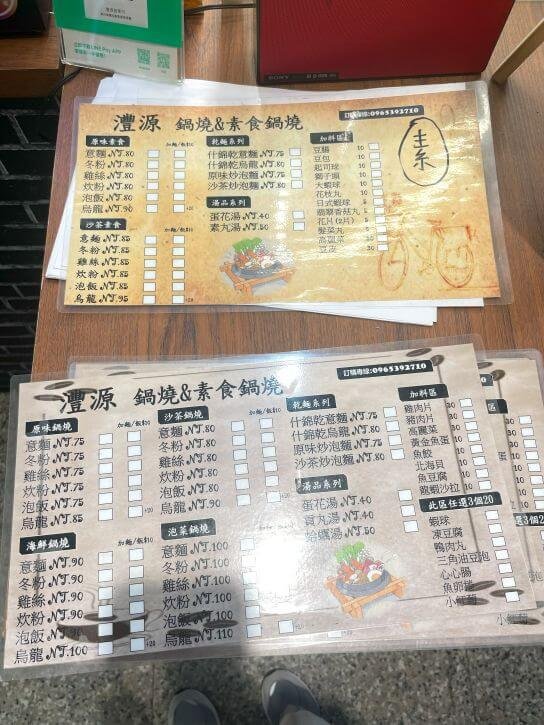 立即下載LINE Pay APP
SONY
灃源 鍋燒&素食鍋燒
訂購專線:0965392710
素
原味素食 加麵/飯$10
意麵 NT.80
冬粉 NT.80
雞絲 NT.80
炊粉 NT.80
泡飯 NT.80
烏龍 NT.90 +20
沙茶素食
意麵 NT.85
冬粉 NT.85
雞絲 NT.85
炊粉 NT.85
泡飯 NT.85
烏龍 NT.95 +20
乾麵系列
什錦乾意麵 NT.75
什錦乾烏龍 NT.80
原味炒泡麵 NT.75
沙茶炒泡麵 NT.75
湯品系列
蛋花湯 NT.40
素丸湯 NT.50
加料區
豆腸 10
豆包 10
起司球 10
獅子頭 10
大蝦球 10
花枝丸 10
日式蝦球
翡翠香菇丸
花片(2片) 5
髮菜丸
高麗菜 30
豆皮 30
灃源 鍋燒&素食鍋燒
訂購專線:0965392710
原味鍋燒 加麵/飯$10
意麵 NT.75
冬粉 NT.75
雞絲 NT.75
炊粉 NT.75
泡飯 NT.75
烏龍 NT.85 +20
海鮮鍋燒 加麵/飯$10
意麵 NT.90
冬粉 NT.90
雞絲 NT.90
炊粉 NT.90
泡飯 NT.90
烏龍 NT.100 +20
沙茶鍋燒 加麵/飯$10
意麵 NT.80
冬粉 NT.80
雞絲 NT.80
炊粉 NT.80
泡飯 NT.80
烏龍 NT.90
泡菜鍋燒 加麵/飯$10
意麵 NT.100
冬粉 NT.100
雞絲 NT.100
炊粉 NT.100
泡飯 NT.100
烏龍 NT.110 +20
乾麵系列
什錦乾意麵 NT.75
什錦乾烏龍 NT.80
原味炒泡麵 NT.75
沙茶炒泡麵 NT.75
湯品系列
蛋花湯 NT.40
貢丸湯 NT.40
蛤蠣湯 NT.50
加料區
雞肉片 30
豬肉片 30
高麗菜 30
黃金魚蛋
魚餃
北海貝
魚豆腐
龍蝦沙拉
此區任選3個20
蝦球
凍豆腐
鴨肉丸
三角油豆包
心心腸
魚卵捲
小虹筍